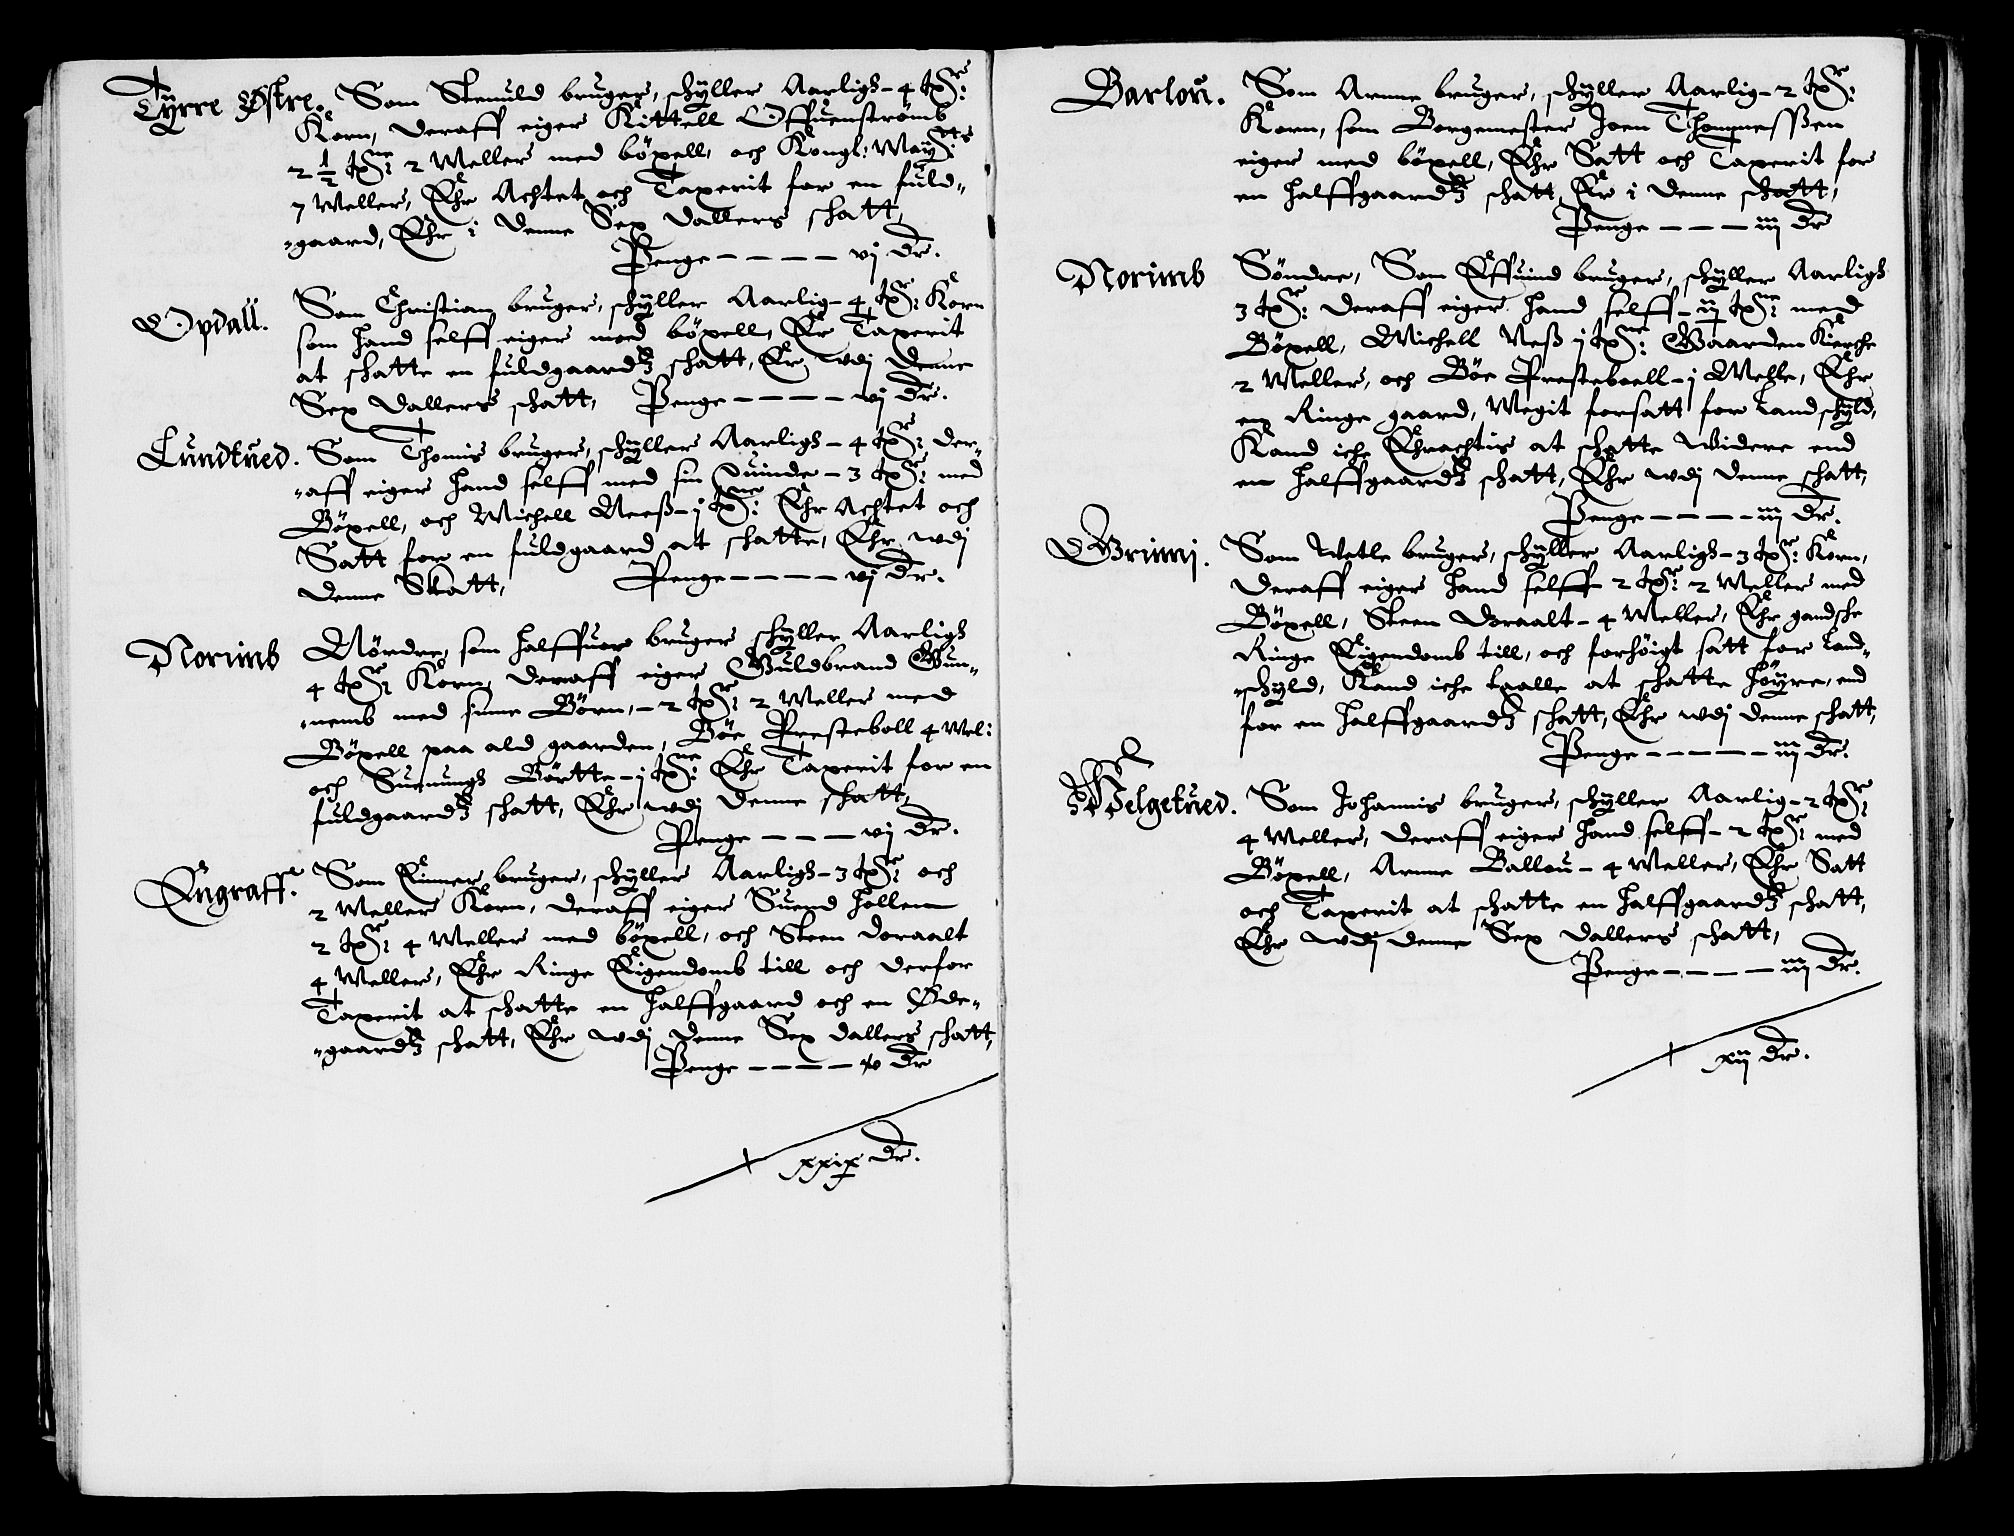 Tÿrre Østre. Som Stenuld bruger, schÿller Aarligs - 4 tđr:
Korn, deraff eiger Kittell Offuenströmb
2 1/2 tđr: 2 Meller med böxell, och Kongl: Maÿts:
7 Meller, Ehr Achtet och Taxerit for en fuld-
gaard, Ehr i denne Sex dallers schatt,
Penge - - - - vj dr.
Opdall. Som Christian bruger, schÿller Aarlig - 4 tđr: Korn
som hand selff eiger med böxell, Er Taxerit
at schatte en fuldgaards schatt, Er wdj denne
Sex dallers schatt, Penge - - - - vj dr.
Lundtued. Som Thomis bruger, schÿller Aarligs - 4 tđr: der-
aff eiger hand selff med sin Quinde - 3 tđr: med
Böxell, och Michell Neeß - j tđe: Ehr Achtet och
Satt for en fuldgaard at schatte, Ehr wdj
denne Skatt, Penge - - - - vj dr.
Norimb Nördre, som Halffuor bruger schÿller Aarligs
4 tđr: Korn, deraff eiger Guldbrand Gun-
nemb med sinne Börn, - 2 tđr: 2 Meller med
Böxell paa ald gaarden, Böe Presteboll 4 Mel:
och Suenungs Börtte - j tđe: Ehr Taxerit for en
fuldgaards schatt, Ehr wdj denne schatt,
Penge - - - vj dr.
Engraff. Som Einner bruger, schÿller Aarligs - 3 tđr: och
2 Meller Korn, deraff eiger Suend Hollem
2 tđr: 4 Meller med böxell, och Steen Doraalt
4 Meller, Ehr Ringe Eigendomb till och derfor
Taxerit at schatte en halffgaard och en Øde-
gaards schatt, Ehr wdj denne Sex dallers schatt,
Penge - - - - v dr
xxix dr.
Barlou. Som Arnne bruger, schÿller Aarlig - 2 tđr:
Korn, som Borgemester Joen Thommeßen
eiger med böxell, Ehr Satt och Taxerit for
en halffgaards schatt, Er i denne schatt,
Penge - - - iij dr
Norimb Söndre, Som Effuind bruger, schÿller Aarligs
3 tđr: deraff eiger hand selff - ij tđr: med
Böxell, Michell Neß j tđe: Gaarden Kierche
2 Meller, och Böe Presteboell - j Melle, Ehr
en Ringe gaard, Megit forsatt for Landschÿld,
Kand iche Ehrachtis at schatte widere end
en halffgaards schatt, Ehr wdj denne schatt,
Penge - - - - iij dr.
Grimmj. Som Wetle bruger, schÿller Aarligs - 3 tđr: Korn,
deraff eiger hand selff - 2 tđr: 2 Meller med
Böxell, Steen Doraalt - 4 Meller, Ehr gandsche
Ringe Eigendomb till, och forhöigt satt for Land-
schÿld, Kand iche taalle at schatte höÿre, end
for en halffgaards schatt, Ehr wdj denne schatt,
Penge - - - - - iij dr.
Helgetued. Som Johannis bruger, schÿller Aarlig - 2 tđr:
4 Meller, deraff eiger hand selff - 2 tđr: med
Böxell, Arnne Ballou - 4 Meller, Ehr Satt
och Taxerit at schatte en halffgaards schatt,
Ehr wdj denne Sex dallers schatt,
Penge - - - - iij dr.
xij dr.